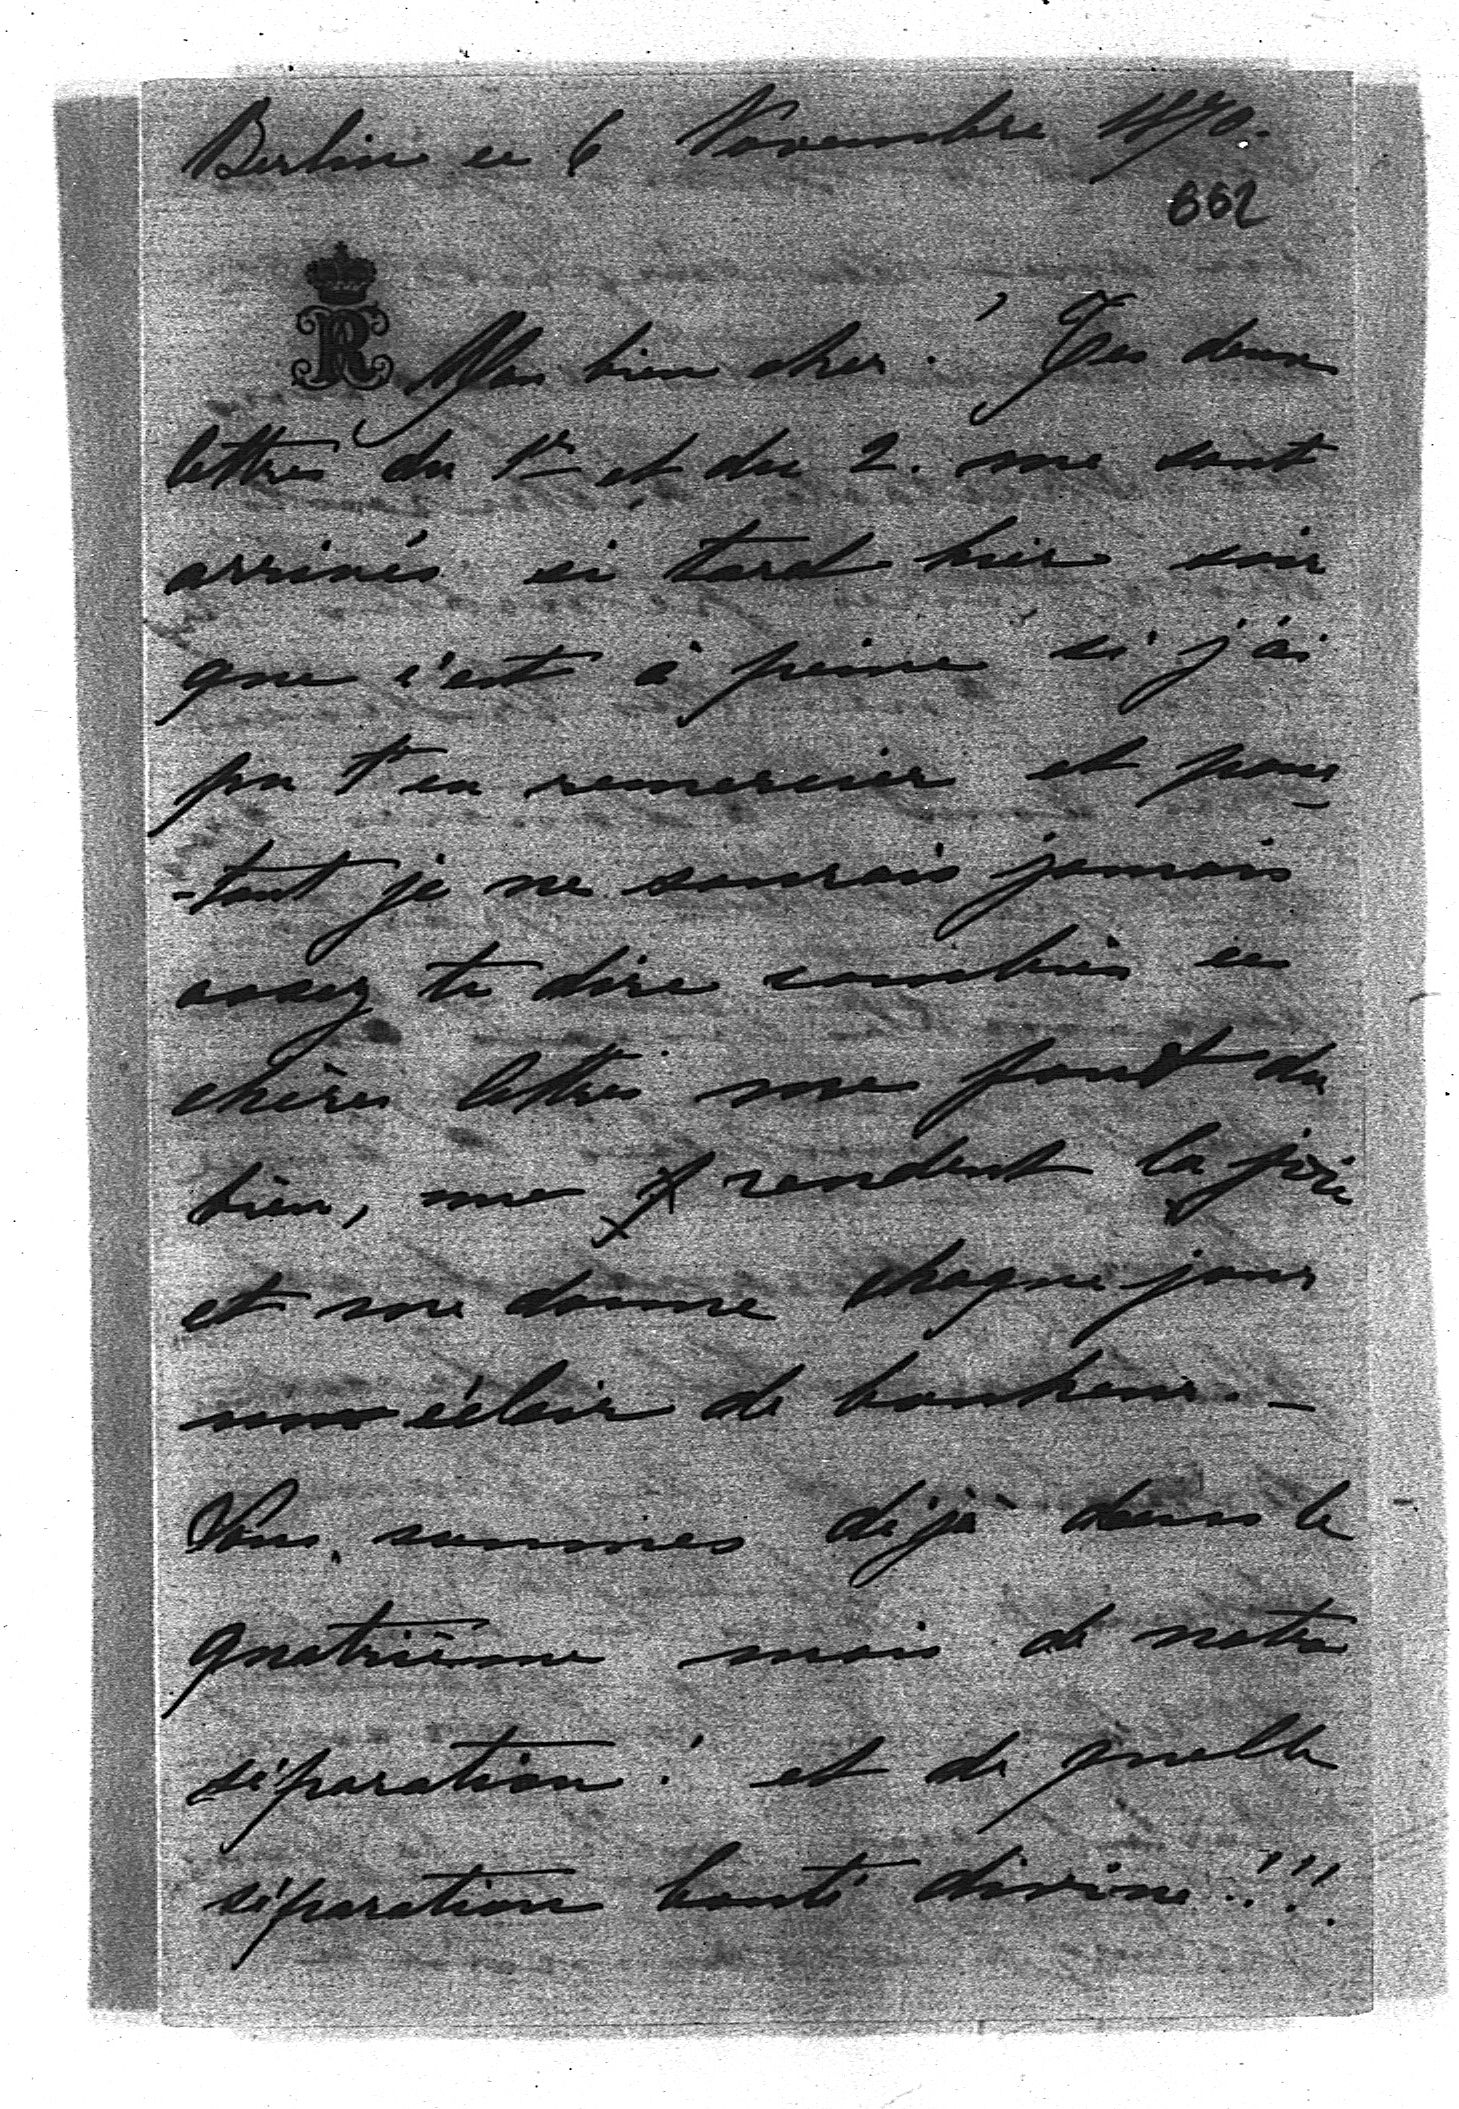 Berlin ce 6 Novembre 1870.
662
R
Mon bien cher! Tes deux
lettres du 1er et du 2. me sont
arrivés si tard hier soir
que c'est à peine si j'ai
pu t'en remercier et pour-
-tant je ne saurais jamais
assez te dire combien ces
chères lettres me font du
bien, me rendent la joie
et me donne chaque jour
une éclair de bonheur. _
Nous sommes déjà dans le
quatrième mois de notre
séparation! et de quelle
séparation bonté divine!!!